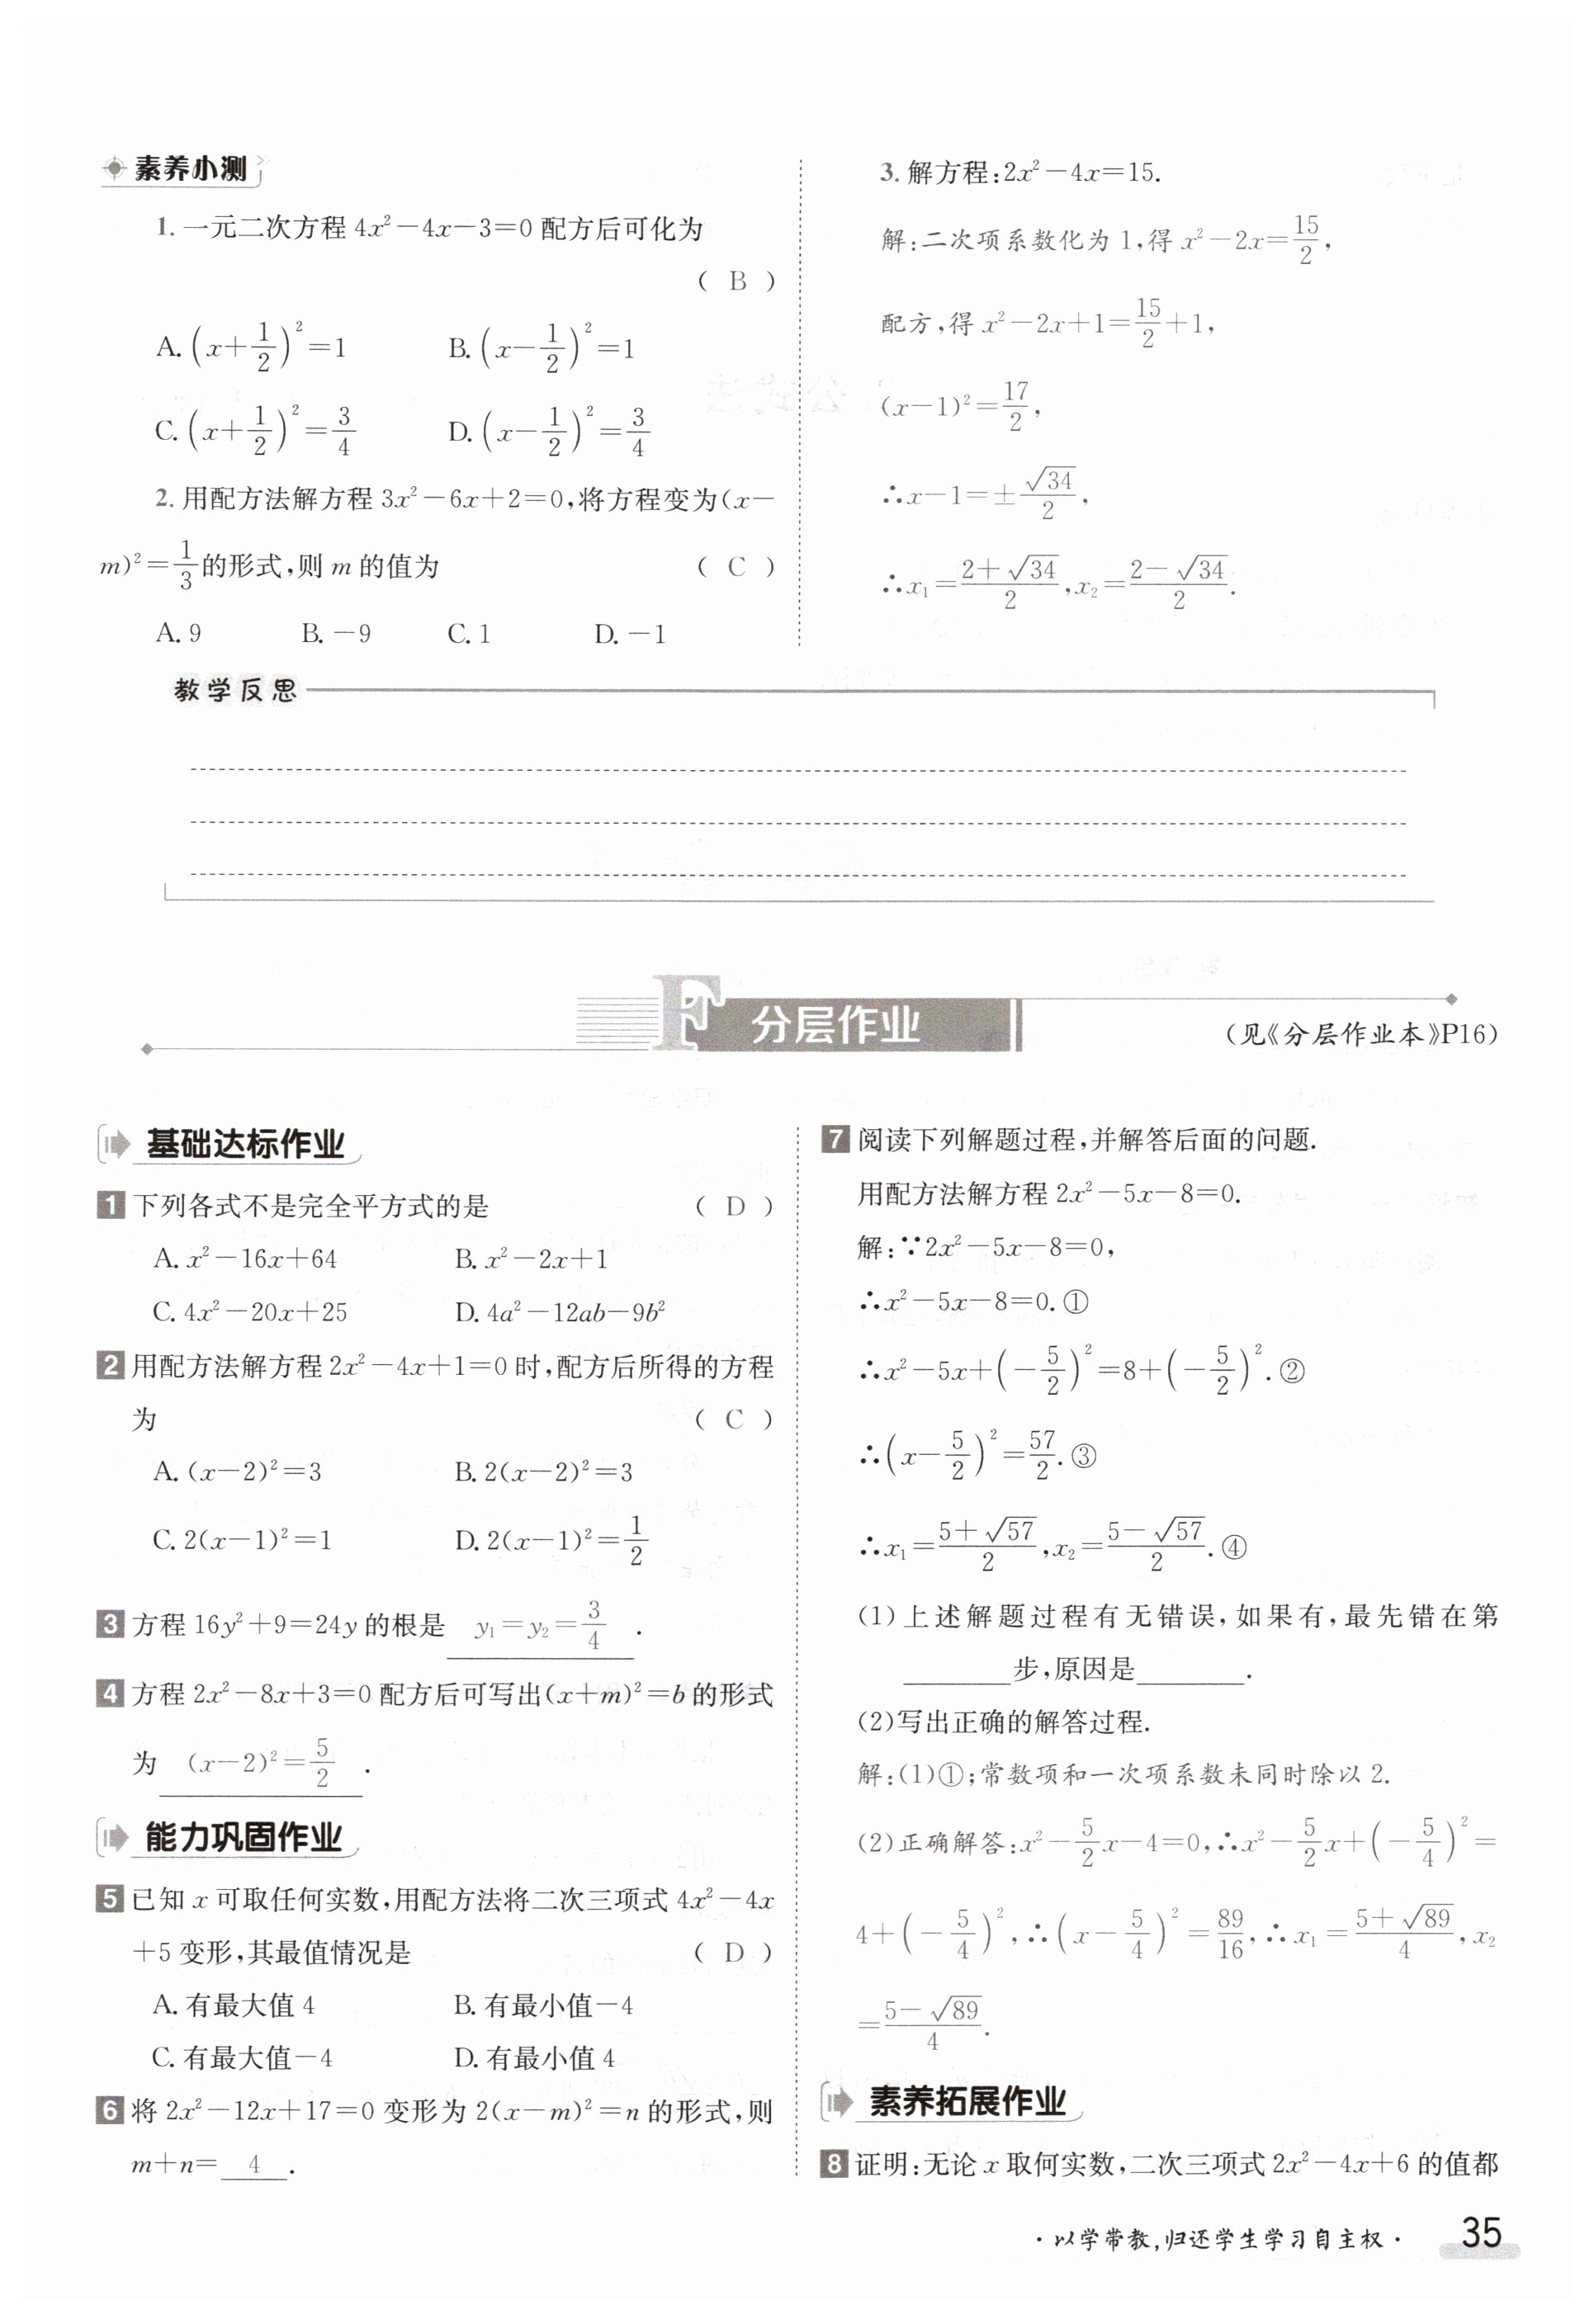 素养小测
1. 一元二次方程 4x²－4x－3＝0 配方后可化为
( B )
A. (x＋1/2)²＝1 B. (x－1/2)²＝1
C. (x＋1/2)²＝3/4 D. (x－1/2)²＝3/4
2. 用配方法解方程 3x²－6x＋2＝0,将方程变为(x－
m)²＝1/3的形式,则 m 的值为 ( C )
A. 9 B. －9 C. 1 D. －1
3. 解方程:2x²－4x＝15.
解:二次项系数化为 1,得 x²－2x＝15/2,
配方,得 x²－2x＋1＝15/2＋1,
(x－1)²＝17/2,
∴x－1＝±√34/2,
∴x₁＝(2＋√34)/2,x₂＝(2－√34)/2.
教学反思
F 分层作业
(见《分层作业本》P16)
基础达标作业
1 下列各式不是完全平方式的是 ( D )
A. x²－16x＋64 B. x²－2x＋1
C. 4x²－20x＋25 D. 4a²－12ab－9b²
2 用配方法解方程 2x²－4x＋1＝0 时,配方后所得的方程
为 ( C )
A. (x－2)²＝3 B. 2(x－2)²＝3
C. 2(x－1)²＝1 D. 2(x－1)²＝1/2
3 方程 16y²＋9＝24y 的根是 y₁＝y₂＝3/4 .
4 方程 2x²－8x＋3＝0 配方后可写出(x＋m)²＝b 的形式
为 (x－2)²＝5/2 .
能力巩固作业
5 已知 x 可取任何实数,用配方法将二次三项式 4x²－4x
＋5 变形,其最值情况是 ( D )
A. 有最大值 4 B. 有最小值－4
C. 有最大值－4 D. 有最小值 4
6 将 2x²－12x＋17＝0 变形为 2(x－m)²＝n 的形式,则
m＋n＝ 4 .
7 阅读下列解题过程,并解答后面的问题.
用配方法解方程 2x²－5x－8＝0.
解:∵2x²－5x－8＝0,
∴x²－5x－8＝0. ①
∴x²－5x＋(－5/2)²＝8＋(－5/2)². ②
∴(x－5/2)²＝57/2. ③
∴x₁＝(5＋√57)/2,x₂＝(5－√57)/2. ④
(1)上述解题过程有无错误,如果有,最先错在第
________步,原因是________.
(2)写出正确的解答过程.
解:(1)①;常数项和一次项系数未同时除以 2.
(2)正确解答:x²－5/2x－4＝0,∴x²－5/2x＋(－5/4)²＝
4＋(－5/4)²,∴(x－5/4)²＝89/16,∴x₁＝(5＋√89)/4,x₂
＝(5－√89)/4.
素养拓展作业
8 证明:无论 x 取何实数,二次三项式 2x²－4x＋6 的值都
·以学带教,归还学生学习自主权· 35